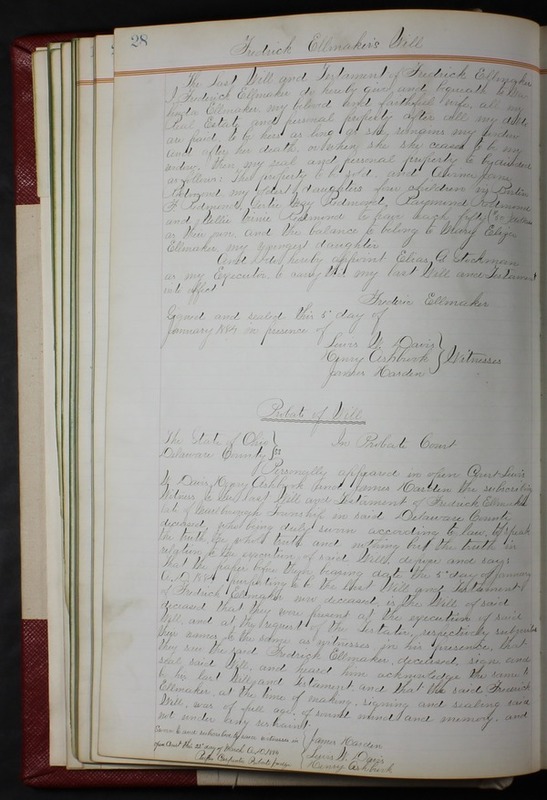 28
Fredrick Ellmaker's Will
The Last Will and Testament of Fredrick Ellmaker
I Fredrick Ellmaker do hereby give and bequeath to
Ellmaker my beloved and faithful wife, all my
Real Estate and personal property after all my debts
are paid to be hers as long as she remains my widow
and after her death, or when she she ceases to be my
widow, then my real and personal property to be divided
as follows: The property to be sold and
Redmond my oldest daughters four children
F Redmond, Gertie May Redmond, Raymond Redmond
and Redmond to have each fifty
or their own and the balance to belong to Mary Eliza
Ellmaker, my youngest daughter
And I do hereby appoint Elias A Stockman
as my Executor to carry this my last Will and Testament
into effect
Fredric Ellmaker
Signed and sealed this 5" day of
January 1884 in presence of
Lewis W Davis
Henry Ashbrook } Witnesses
James Harden
Probate of Will
The State of Ohio } In Probate Court
Delaware County } ss
Personally appeared in open Court Lewis
W Davis, Henry Ashbrook and James Harden the subscribing
Witnesses to the last Will and Testament of Fredrick Ellmaker
late of Township in said Delaware County
deceased, who being duly sworn according to law, to speak
the truth the whole truth and nothing but the truth in
relation to the execution of said Will, depose and say:
That the paper before them, bearing date the 5" day of January
A.D. 1884 purporting to be the last Will and Testament
of Fredrick Ellmaker now deceased, is the Will of said
deceased that they were present at the execution of said
Will, and at the request of the Testator, respectively subscribed
their names to the same as witnesses in his presence, that
they saw the said Fredrick Ellmaker, deceased, sign and
seal said Will, and heard him acknowledge the same to
be his last Will and Testament and that the said Fredrick
Ellmaker, at the time of making, signing and sealing said
Will, was of full age, of sound mind and memory, and
not under any restraint
Sworn to and subscribed by said witnesses in } James Harden
open Court this 22" day of March A.D. 1884 } Lewis W. Davis
Probate Judge } Henry Ashbrook